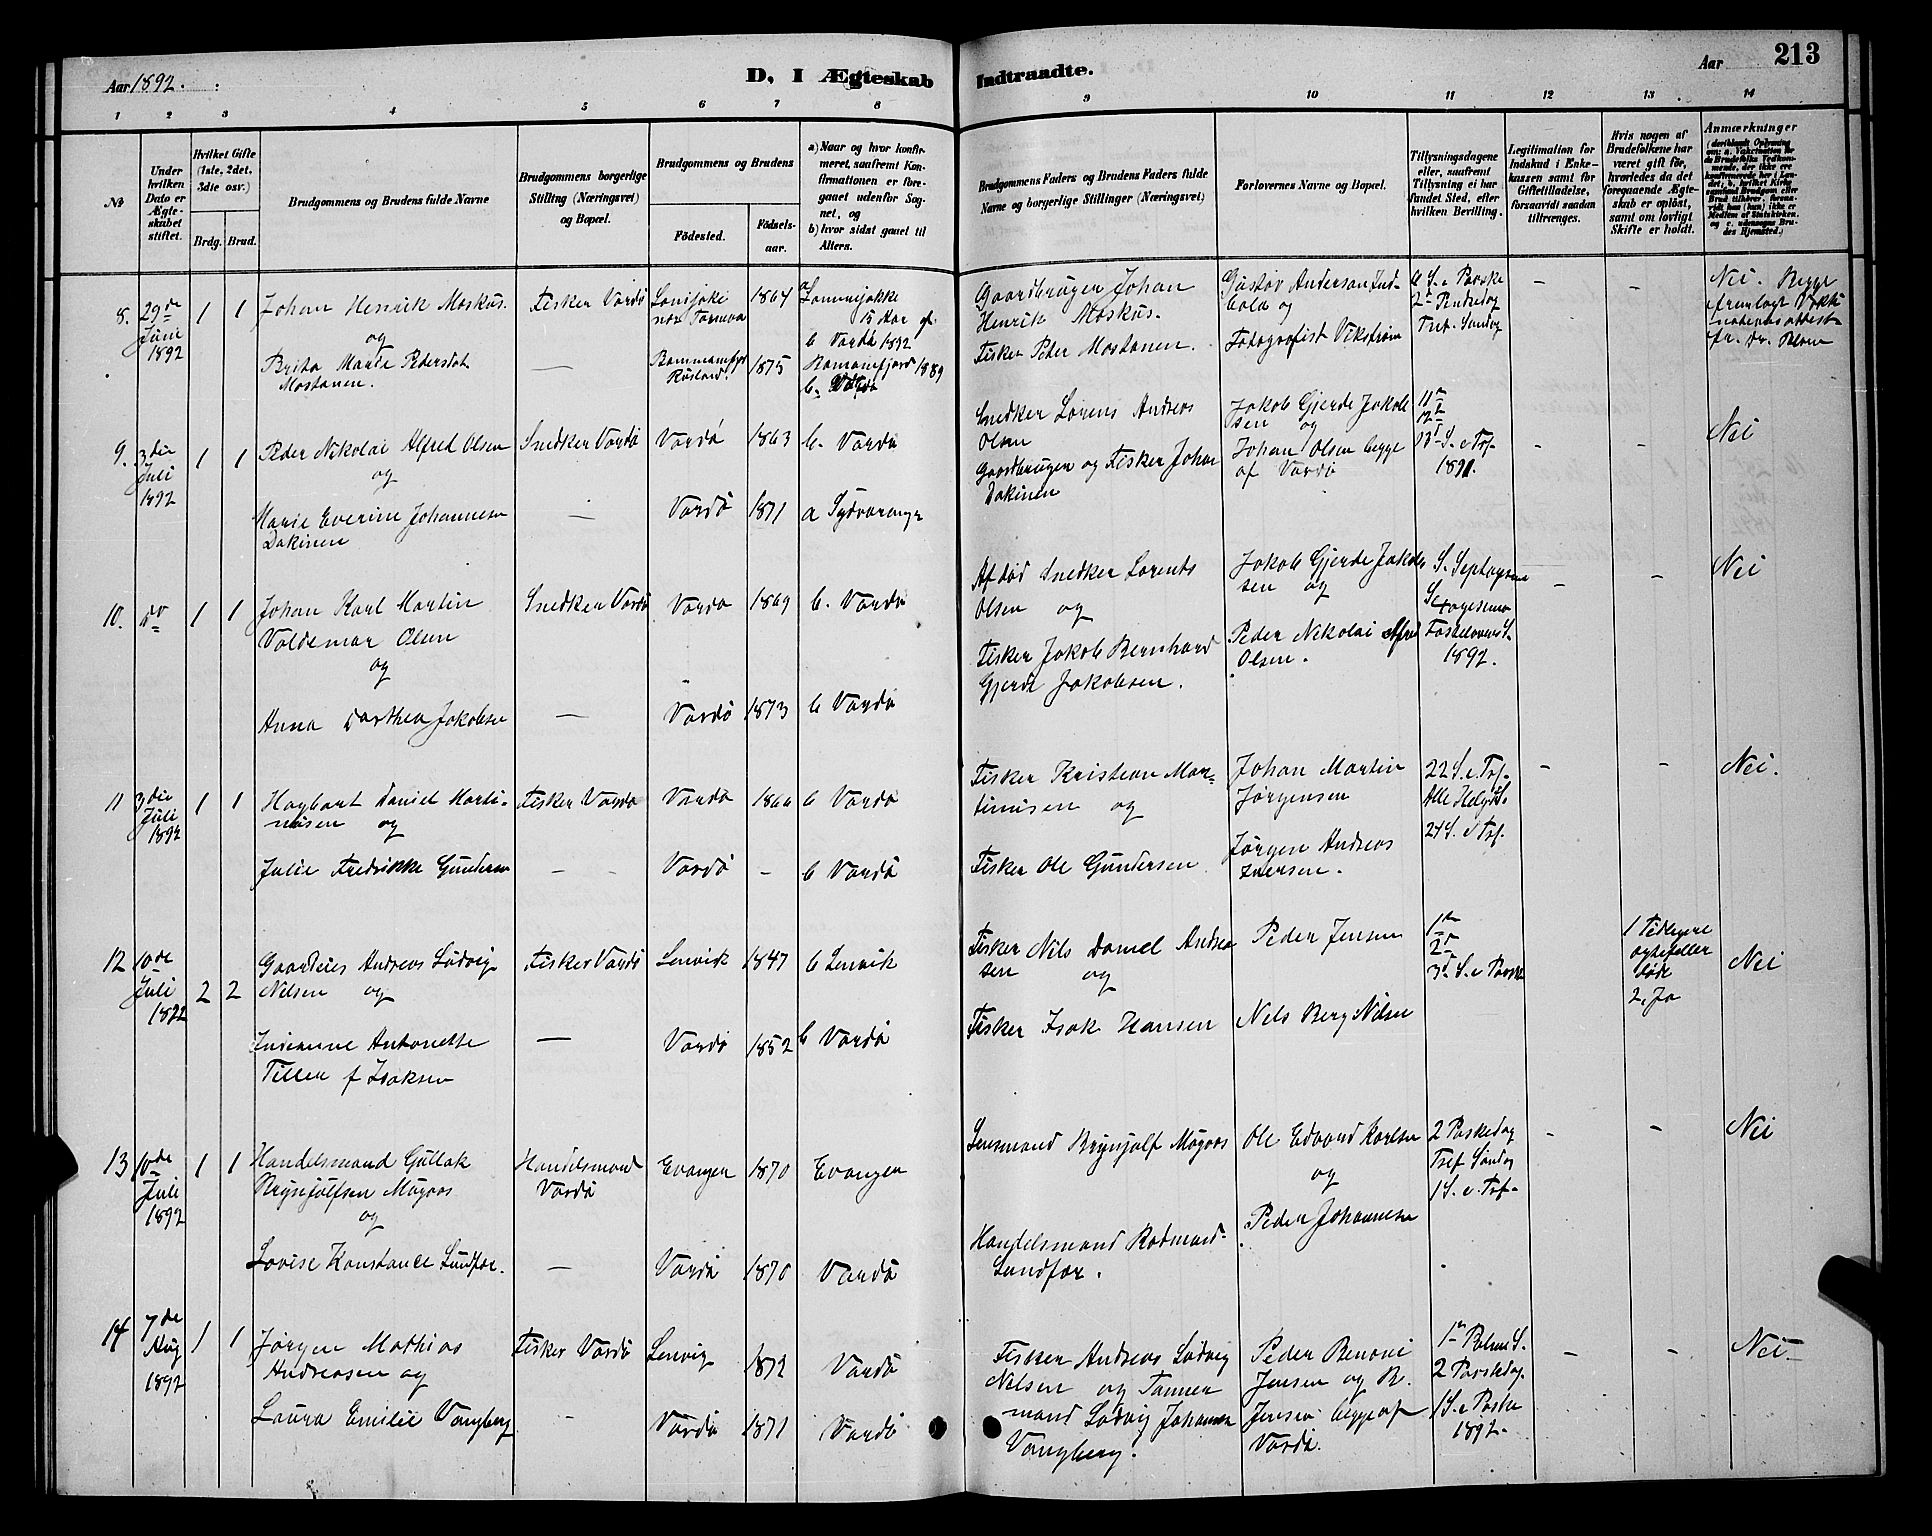 Aar 1892.
D, I Ægteskab
Indtraadte.
Aar
213
1
2
3
4
5
6
7
8
9
10
11
12
13
14
№
Under
hvilken
Dato er
Ægte-
skabet
stiftet.
Hvilket Gifte
(1ste, 2det,
3die osv.)
Brdg.
Brud.
Brudgommens og Brudens fulde Navne
Brudgommens borgerlige
Stilling (Næringsvei)
og Bopæl.
Brudgommens og Brudens
Födested.
Födsels-
aar.
a) Naar og hvor konfir-
meret, saafremt Kon-
firmationen er fore-
gaaet udenfor Sog-
net, og
b) hvor sidst gaaet til
Alters.
Brudgommens Faders og Brudens Faders fulde
Navne og borgerlige Stillinger (Næringsvei)
Forlovernes Navne og Bopæl.
Tillysningsdagene
eller, saafremt
Tillysning ei har
fundet Sted, efter
hvilken Bevilling.
Legitimation for
Indskud i Enke-
kassen samt for
Giftetilladelse,
forsaavidt saadan
tiltrænges.
Hvis nogen af
Brudefolkene har
været gift för,
hvorledes da det
foregaaende Ægte-
skab er oplöst,
samt om lovligt
Skifte er holdt.
Anmærkninger
8.
29de
Juni
1892
1
1
Johan Henrik Moskus.
og
Brita Marie Pedersdat
Mostanen.
Fisker Vardö
—
1864
1875
15 Aar gl.
b Vardö 1892
1889
b. Vardö
Gaardbruger Johan
Henrik Moskus.
Fisker Peter Mostanen.
Gustav Anderson Ind-
og
Fotografist Vikström
6 S. e Paaske
2n Pindsedag
Tref. Söndag
–
–
Nei. Begge
9.
3die
Juli
1892
1
1
Peder Nikolai Alfred Olsen
og
Marie Everine Johannesen
Dakinen
Snedker Vardö
—
Vardö
Vardö
1863
1871
b. Vardö
a Sydvaranger
Snedker Lorens Andreas
Olsen
Gaardbruger og Fisker Johan
Dakinen
Jakob Gjerde Jakob
sen og
Johan Olsen begge
af Vardö
11n
12t
13t S. e Tref.
1891.
–
–
Nei
10.
do
1
1
Johan Karl Martin
Valdemar Olsen
og
Anna Dorthea Jakobsen
Snedker Vardö
—
Vardö
Vardö
1869
1873
b. Vardö
b Vardö
Afdöd Snedker Lorents
Olsen og
Fisker Jakob Bernhard
Gjerde Jakobsen.
Jakob Gjerde Jakob
sen og
Peder Nikolai Alfred
Olsen.
S. Septuages
Sexagesima
Fastelavens S.
1892.
–
–
Nei
11
3die
Juli
1892
1
1
Hagbart Daniel Marti-
nusen og
Julie Fredrikke Gundersen
Fisker Vardö
—
Vardö
Vardö
1866
–
b Vardö
b Vardö
Fisker Kristian Mar-
tinusen og
Fisker Ole Gundersen
Johan Martin
Jörgensen
Jörgen Andreas
Iversen.
22 S. e Tref.
Alle Helg. S.
24 S. e Tref.
–
–
Nei.
12
10de
Juli
1892
2
2
Andreas Ludvig
Nilsen og
Antonette
Tiller f Isaksen
Fisker Vardö
—
Lenvik
Vardö
1847
1852
b Lenvik
b Vardö
Fisker Nils Daniel Andrea
sen og
Fisker Isak Hansen
Peder Jensen
Nils Berg Nilsen
1n
2n
3t S. e Paaske
1 Tidligere
ægtefæller
död
2, Ja
Nei
13
10de
Juli
1892
1
1
Handelsmand Gullak
Brynjulfsen Mugaas
og
Lovise Konstance Sundfær.
Handelsmand
Vardö
—
Evanger
Vardö
1870
1870
Evanger
Vardö
Lensmand Brynjulf Mugaas
Handelsmand Rodmand
Sundfær.
Ole Edvard Karlsen
og
Peder Johannesen
2 Paaskedag
Tref Söndag
1 S. e. Tref.
–
–
Nei
14
7de
Aug
1892
1
1
Jörgen Mathias
Andreasen og
Laura Emilie Vangberg
Fisker Vardö
—
Lenvig
Vardö
1872
1871
Vardö
Vardö
Fisker Andreas Ludvig
Nilsen og Tömmer
mand Ludvig Johannes
Vangberg.
Peder Benoni
Jensen og B.
Jensen begge af
Vardö.
1n Palme S.
2 Paaskedag
1 S. e Paaske
1892.
–
–
Nei